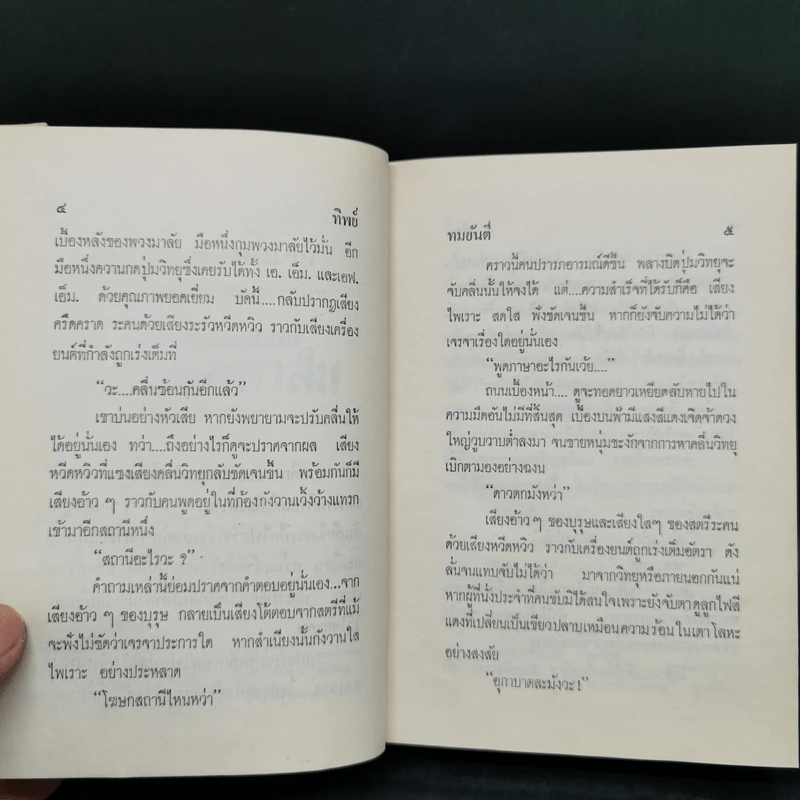 ๔ ทิพย์
เบื้องหลังของพวงมาลัย มือหนึ่งกุมพวงมาลัยไว้มั่น อีก
มือหนึ่งควานกดปุ่มวิทยุซึ่งเคยรับได้ทั้ง เอ. เอ็ม. และเอฟ.
เอ็ม. ด้วยคุณภาพยอดเยี่ยม บัดนี้....กลับปรากฏเสียง
ครืดคราด ระคนด้วยเสียงระรัวหวีดหวิว ราวกับเสียงเครื่อง
ยนต์ที่กำลังถูกเร่งเต็มที่
“วะ....คลื่นซ้อนกันอีกแล้ว”
เขาบ่นอย่างหัวเสีย หากยังพยายามจะปรับคลื่นให้
ได้อยู่นั่นเอง ทว่า....ถึงอย่างไรก็ดูจะปราศจากผล เสียง
หวีดหวิวที่แซงเสียงคลื่นวิทยุกลับชัดเจนขึ้น พร้อมกันก็มี
เสียงอ้าว ๆ ราวกับคนพูดอยู่ในที่ก้องกังวานเวิ้งว้างแทรก
เข้ามาอีกสถานีหนึ่ง
“สถานีอะไรวะ ?”
คำถามเหล่านี้ย่อมปราศจากคำตอบอยู่นั่นเอง...จาก
เสียงอ้าว ๆ ของบุรุษ กลายเป็นเสียงโต้ตอบจากสตรีที่แม้
จะฟังไม่ชัดว่าเจรจาประการใด หากสำเนียงนั้นกังวานใส
ไพเราะ อย่างประหลาด
“โฆษกสถานีไหนหว่า”
ทมยันตี ๕
คราวนี้คนปรารภอารมณ์ดีขึ้น พลางบิดปุ่มวิทยุจะ
จับคลื่นนั้นให้จงได้ แต่....ความสำเร็จที่ได้รับก็คือ เสียง
ไพเราะ สดใส ฟังชัดเจนขึ้น หากก็ยังจับความไม่ได้ว่า
เจรจาเรื่องใดอยู่นั่นเอง
“พูดภาษาอะไรกันเว้ย....”
ถนนเบื้องหน้า.... ดูจะทอดยาวเหยียดลับหายไปใน
ความมืดอันไม่มีที่สิ้นสุด เบื้องบนฟ้ามีแสงสีแดงเจิดจ้าดวง
ใหญ่วูบวาบต่ำลงมา จนชายหนุ่มชะงักจากการหาคลื่นวิทยุ
เบิกตามองอย่างฉงน
“ดาวตกมังหว่า”
เสียงอ้าว ๆ ของบุรุษและเสียงใสๆ ของสตรีระคน
ด้วยเสียงหวีดหวิว ราวกับเครื่องยนต์ถูกเร่งเต็มอัตรา ดัง
ลั่นจนแทบจับไม่ได้ว่า มาจากวิทยุหรือภายนอกกันแน่
หากผู้ที่นั่งประจำที่คนขับมิได้สนใจเพราะยังจับตาดูลูกไฟสี
แดงที่เปลี่ยนเป็นเขียวปลาบเหมือนความร้อนในเตาโลหะ
อย่างสงสัย
“อุกาบาตละมังวะ !”